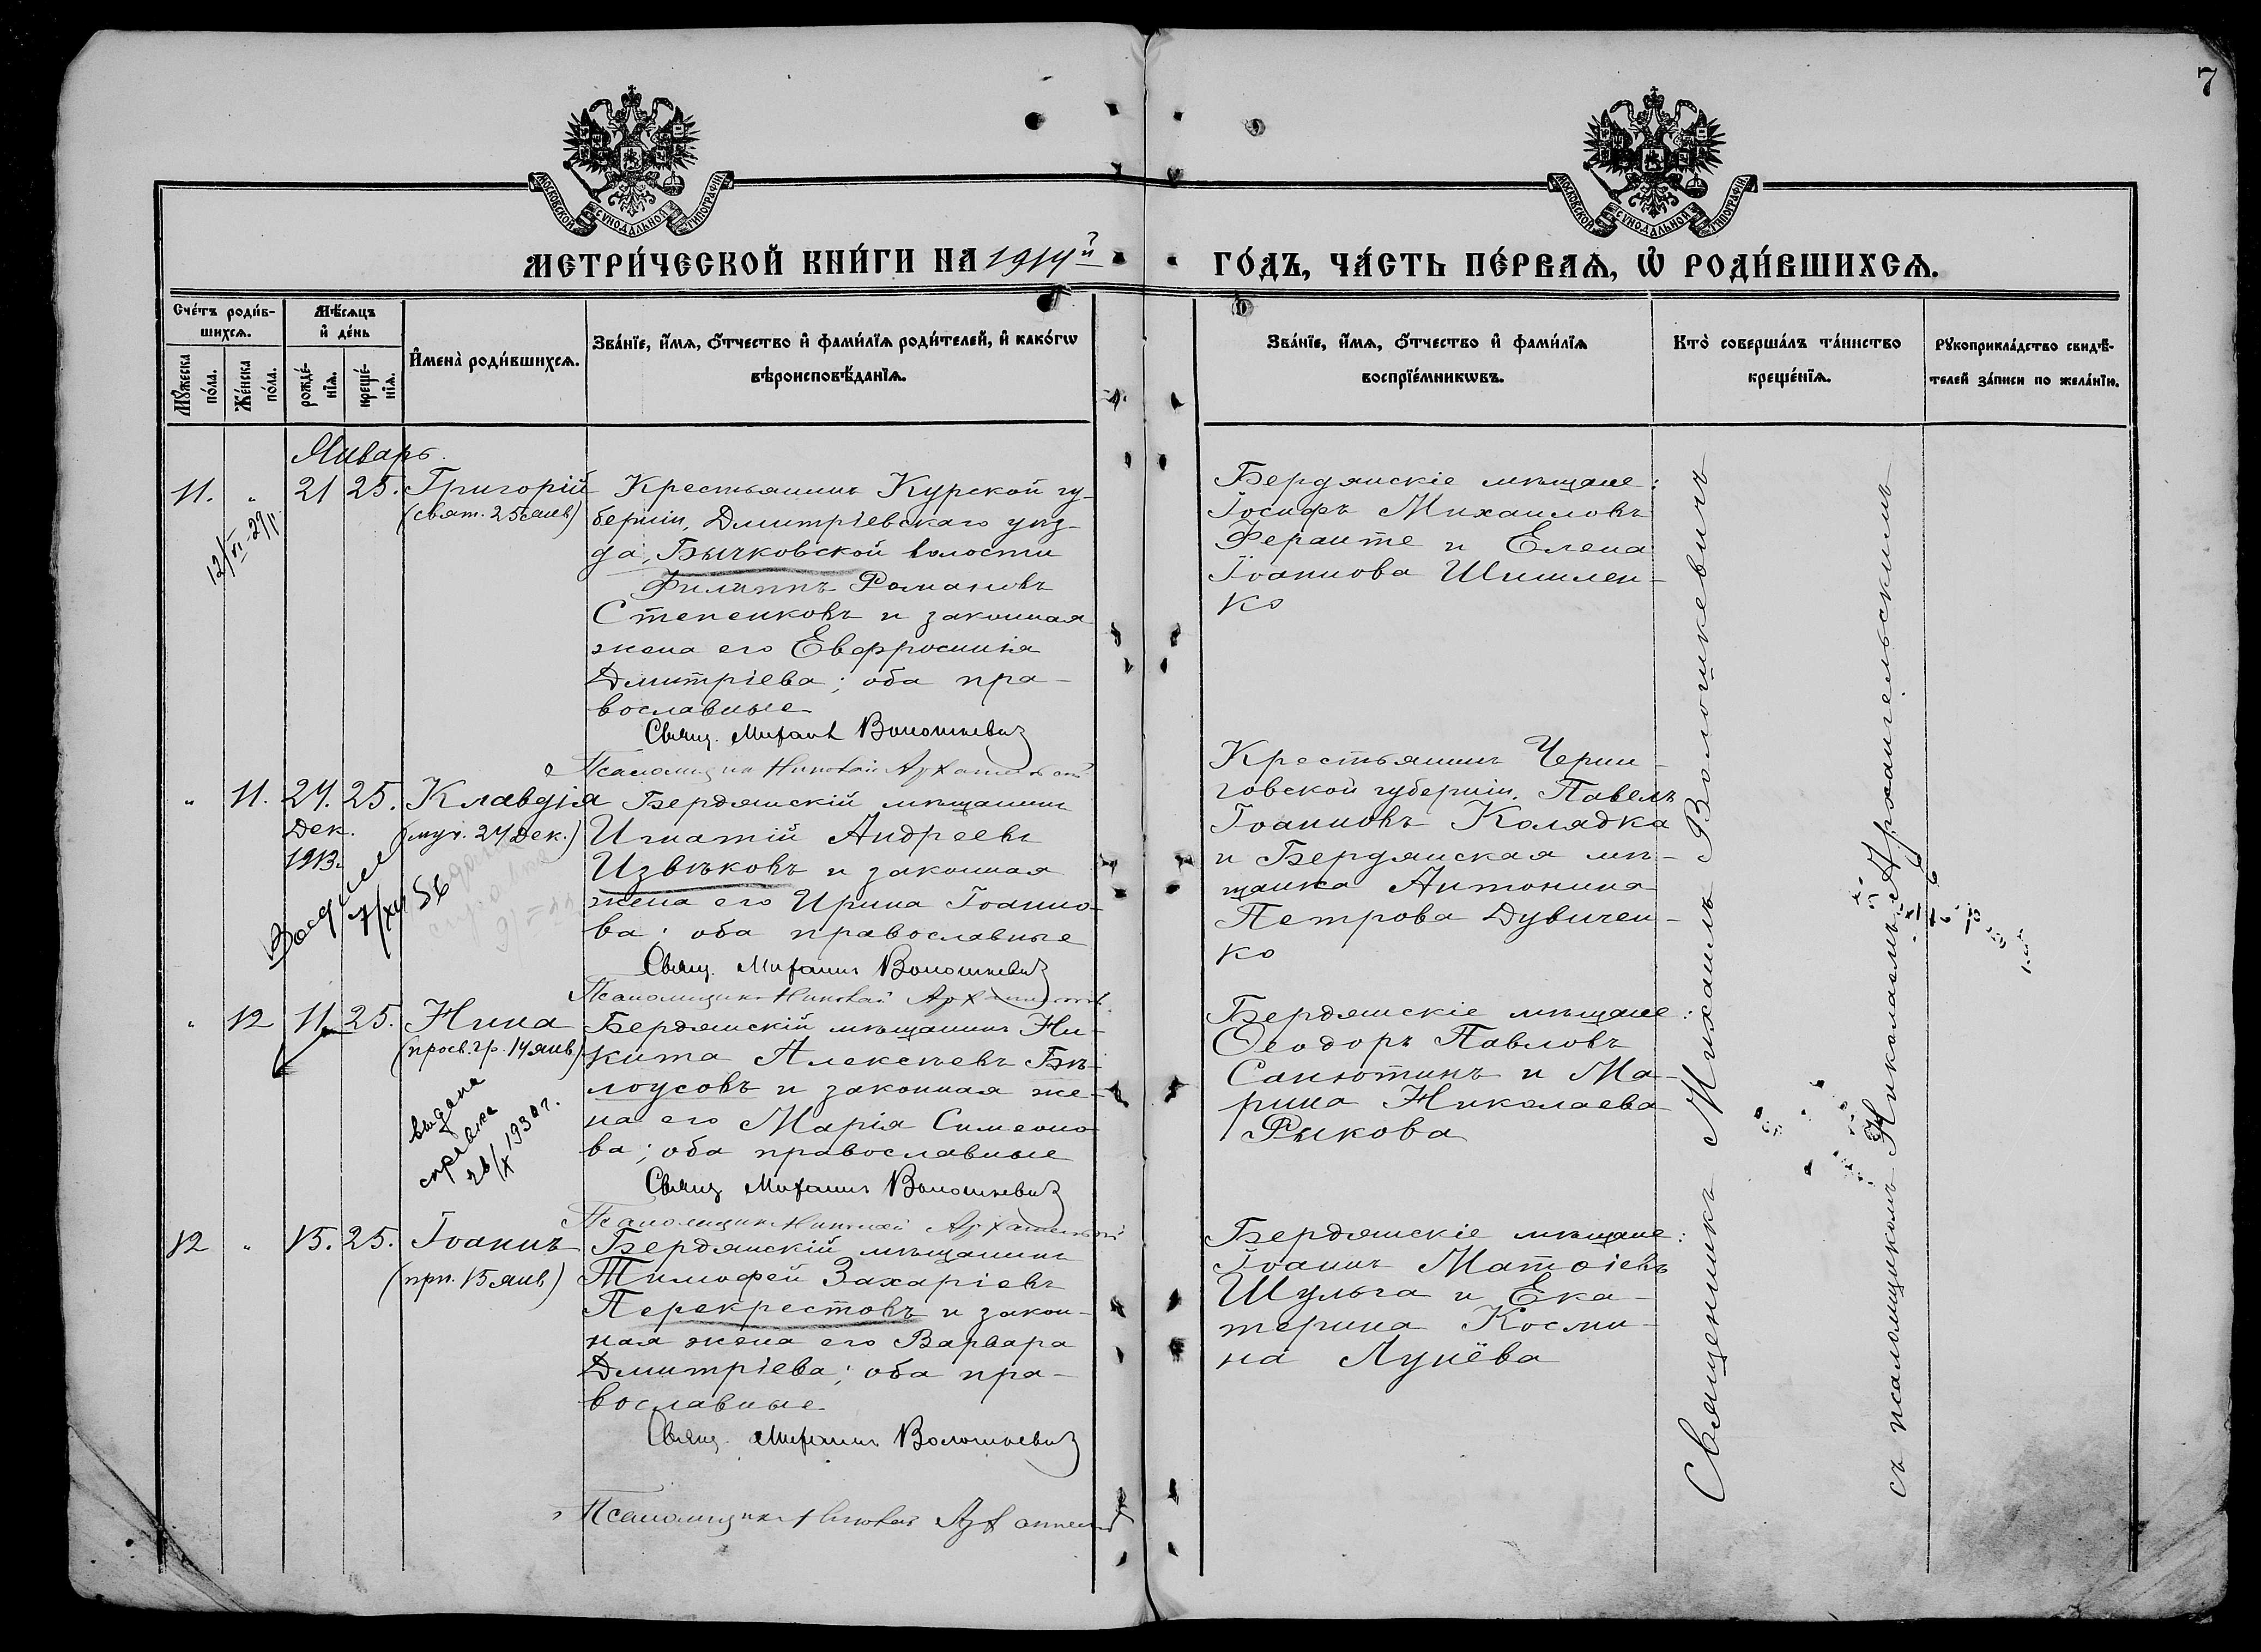 7
МОСКОВСКОЙ СѴНОДАЛЬНОЙ ТИПОГРАФІИ
МОСКОВСКОЙ СѴНОДАЛЬНОЙ ТИПОГРАФІИ
МЕТРИ́ЧЕСКОЙ КНИ́ГИ НА 1914й
ГО́ДЪ, ЧА́СТЬ ПЕ́РВАѦ, Ѡ҆ РОДИ́ВШИХСѦ.
Сче́тъ роди́в-
шихсѧ.
Мꙋ́жеска
по́ла.
Же́нска
по́ла.
Мѣ́сѧцъ
и҆ де́нь
рожде́-
нїѧ.
креще́-
нїѧ.
И҆мена̀ роди́вшихсѧ.
Зва́нїе, и҆́мѧ, ѻ҆́тчество и҆ фами́лїѧ роди́телей, и҆ како́гѡ
вѣроисповѣ́данїѧ.
Зва́нїе, и҆́мѧ, ѻ҆́тчество и҆ фами́лїѧ
воспрїе́мникѡвъ.
Кто̀ соверша́лъ та́инство
креще́нїѧ.
Рꙋкоприкла́дство свидѣ́-
телей за́писи по жела́нїю.
Январь.
11. " 21 25. Григорій
(свят. 25 янв)
12/VI-29г.
Крестьянинъ Курской гу-
берніи, Дмитріевскаго уѣз-
да, Бычковской волости
Филиппъ Романовъ
Степенковъ и законная
жена его Евфросинія
Дмитріева; оба пра-
вославные
Свящ. Михаилъ Волошкевич
Псаломщикъ Николай Архангельскій
Бердянскіе мѣщане:
Іосифъ Михаиловъ
Феранте и Елена
Іоаннова Шишлен-
ко
" 11. 24. 25. Клавдія
Дек. (муч. 24 Дек.)
1913.
7/XII 56
Бердянскій мѣщанинъ
Игнатій Андреевъ
Извѣковъ и законная
жена его Ирина Іоанно-
ва; оба православные
Свящ. Михаилъ Волошкевич
Псаломщикъ Николай Архангельскій
Крестьянинъ Черни-
говской губерніи, Павелъ
Іоанновъ Колядка
и Бердянская мѣ-
щанка Антонина
Петрова Дувичен-
ко
" 12 11 25. Нина
(просв. гр. 14 янв)
выдана
справка
26/X 1930 г.
Бердянскій мѣщанинъ Ни-
кита Алексѣевъ Бѣ-
лоусовъ и законная же-
на его Марія Симеоно-
ва; оба православные
Свящ Михаилъ Волошкевич
Псаломщикъ Николай Архангельскій
Бердянскіе мѣщане:
Ѳеодоръ Павловъ
Санютинъ и Ма-
рина Николаева
Рыкова
12 " 15. 25. Іоаннъ
(прп. 15 янв)
Бердянскій мѣщанинъ
Тимофей Захаріевъ
Перекрестовъ и закон-
ная жена его Варвара
Дмитріева; оба пра-
вославные
Свящ. Михаилъ Волошкевич
Псаломщикъ Николай Архангельскій
Бердянскіе мѣщане:
Іоаннъ Матѳіевъ
Шульга и Ека-
терина Косми-
на Лунёва
Священникъ Михаилъ Волошкевичъ
съ псаломщикомъ Николаемъ Архангельскимъ